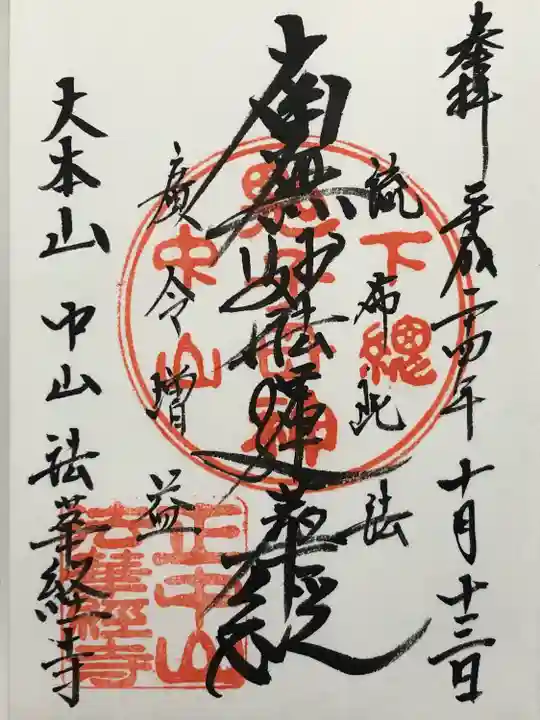 奉拝 平成二十四年十月十三日
流布此法
南無妙法蓮華経
廣令増益
大本山 中山法華経寺
下總
中山
正中山
法華經寺